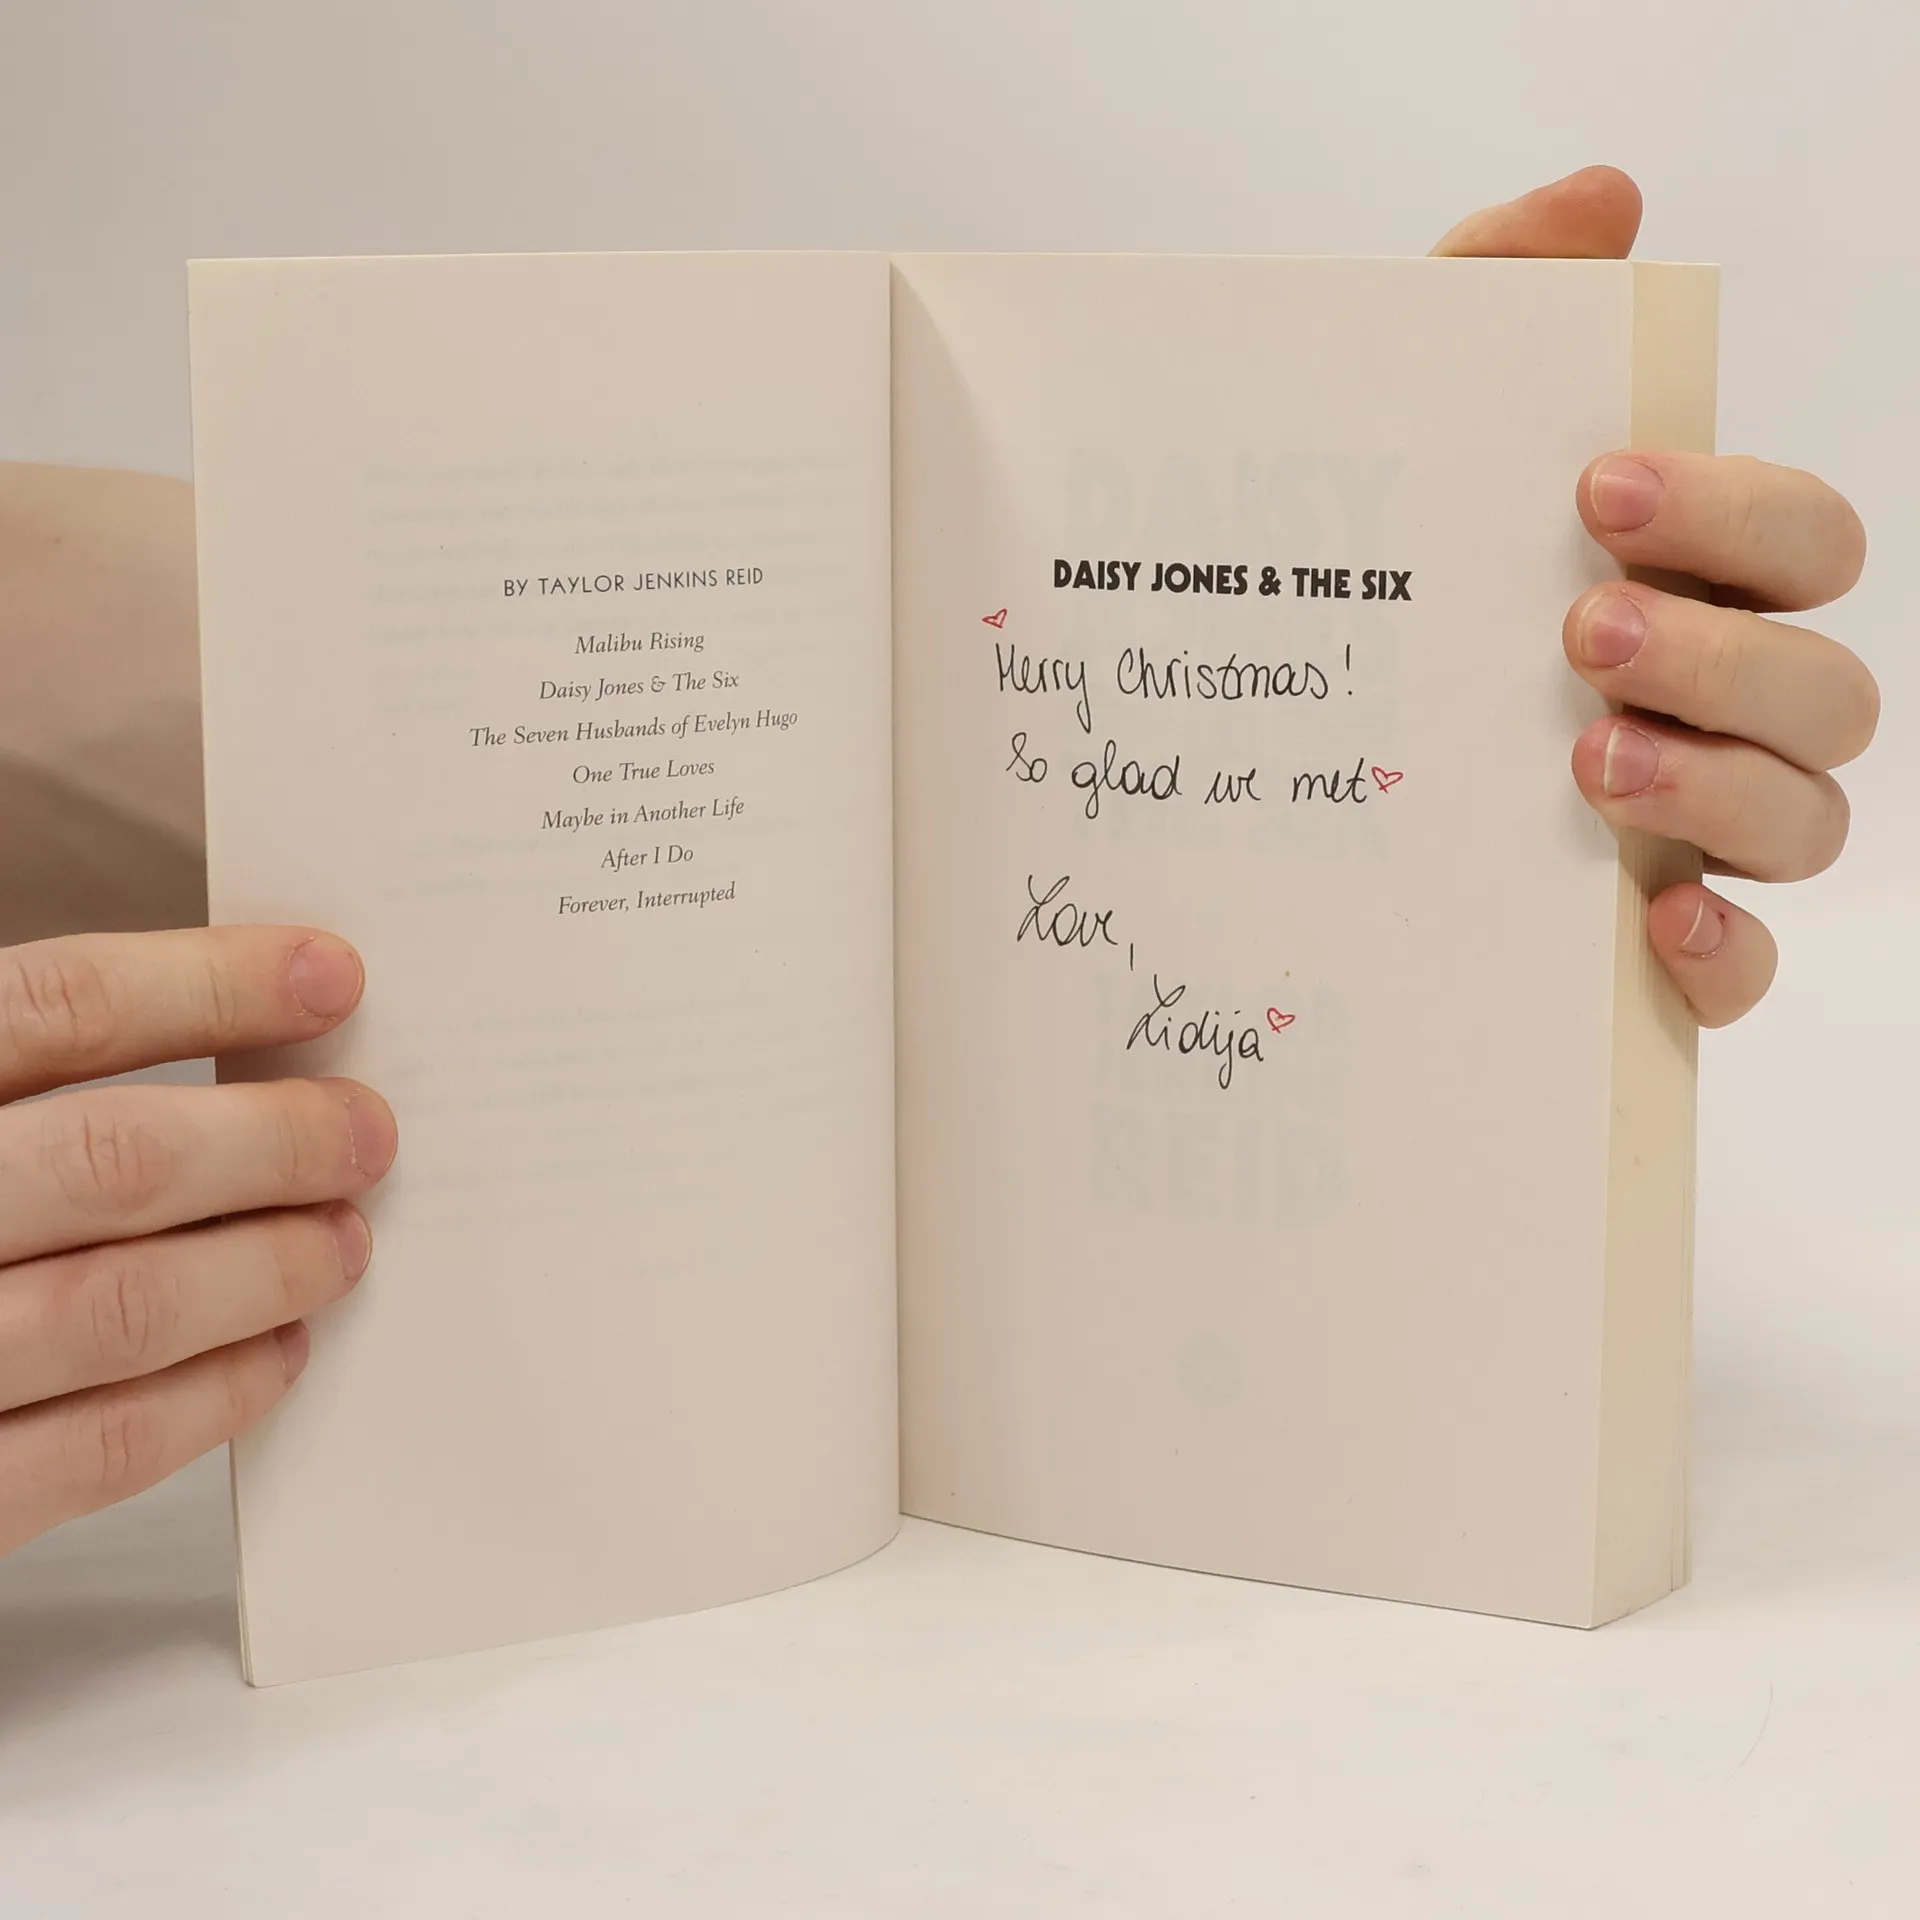 BY TAYLOR JENKINS REID
Malibu Rising
Daisy Jones & The Six
The Seven Husbands of Evelyn Hugo
One True Loves
Maybe in Another Life
After I Do
Forever, Interrupted
DAISY JONES & THE SIX
Merry Christmas!
So glad we met
Love,
Lidija